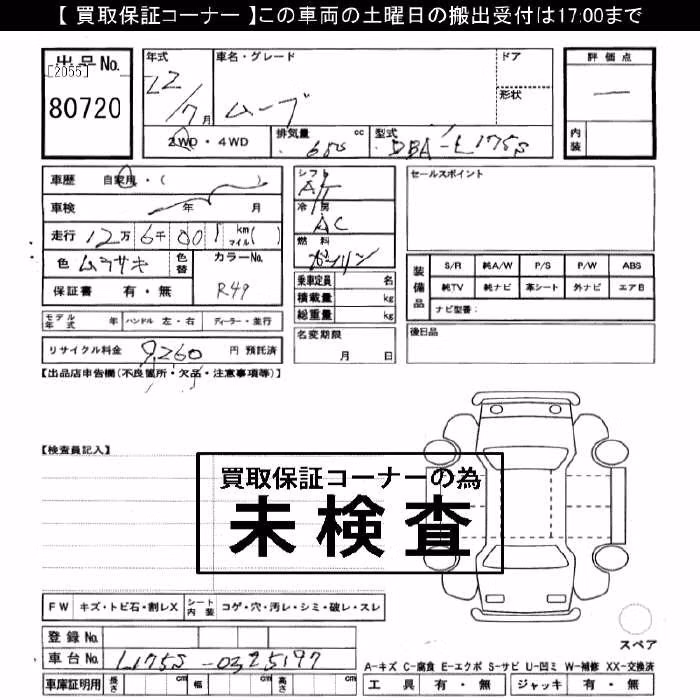 【 買取保証コーナー 】この車両の土曜日の搬出受付は17:00まで
出品No.
[2055]
80720
年式
12/7月
車名・グレード
ムーブ
ドア
形状
評価点
―
内装
2WD・4WD
排気量 cc
660
型式
DBA-L175S
車歴 自家用・( )
車検 年 月
走行 12万 6千 001 km マイル( )
色 ムラサキ
色替
カラーNo.
R49
保証書 有・無
シフト
AT
冷房
AC
燃料
ガソリン
乗車定員 名
積載量 kg
総重量 kg
セールスポイント
装備品
S/R 純A/W P/S P/W ABS
純TV 純ナビ 革シート 外ナビ エアB
ナビ型番:
モデル年式 年 ハンドル 左・右 ディーラー・並行
リサイクル料金 9,260 円 預託済
名変期限
月 日
後日品
【出品店申告欄(不良箇所・欠品・注意事項等)】
【検査員記入】
買取保証コーナーの為
未検査
FW キズ・トビ石・割レX シート内装 コゲ・穴・汚レ・シミ・破レ・スレ
登録No.
車台No. L175S-0325197
車庫証明用 長さ cm 幅 cm 高さ cm
スペア
A-キズ C-腐食 E-エクボ S-サビ U-凹ミ W-補修 XX-交換済
工具 有・無 ジャッキ 有・無